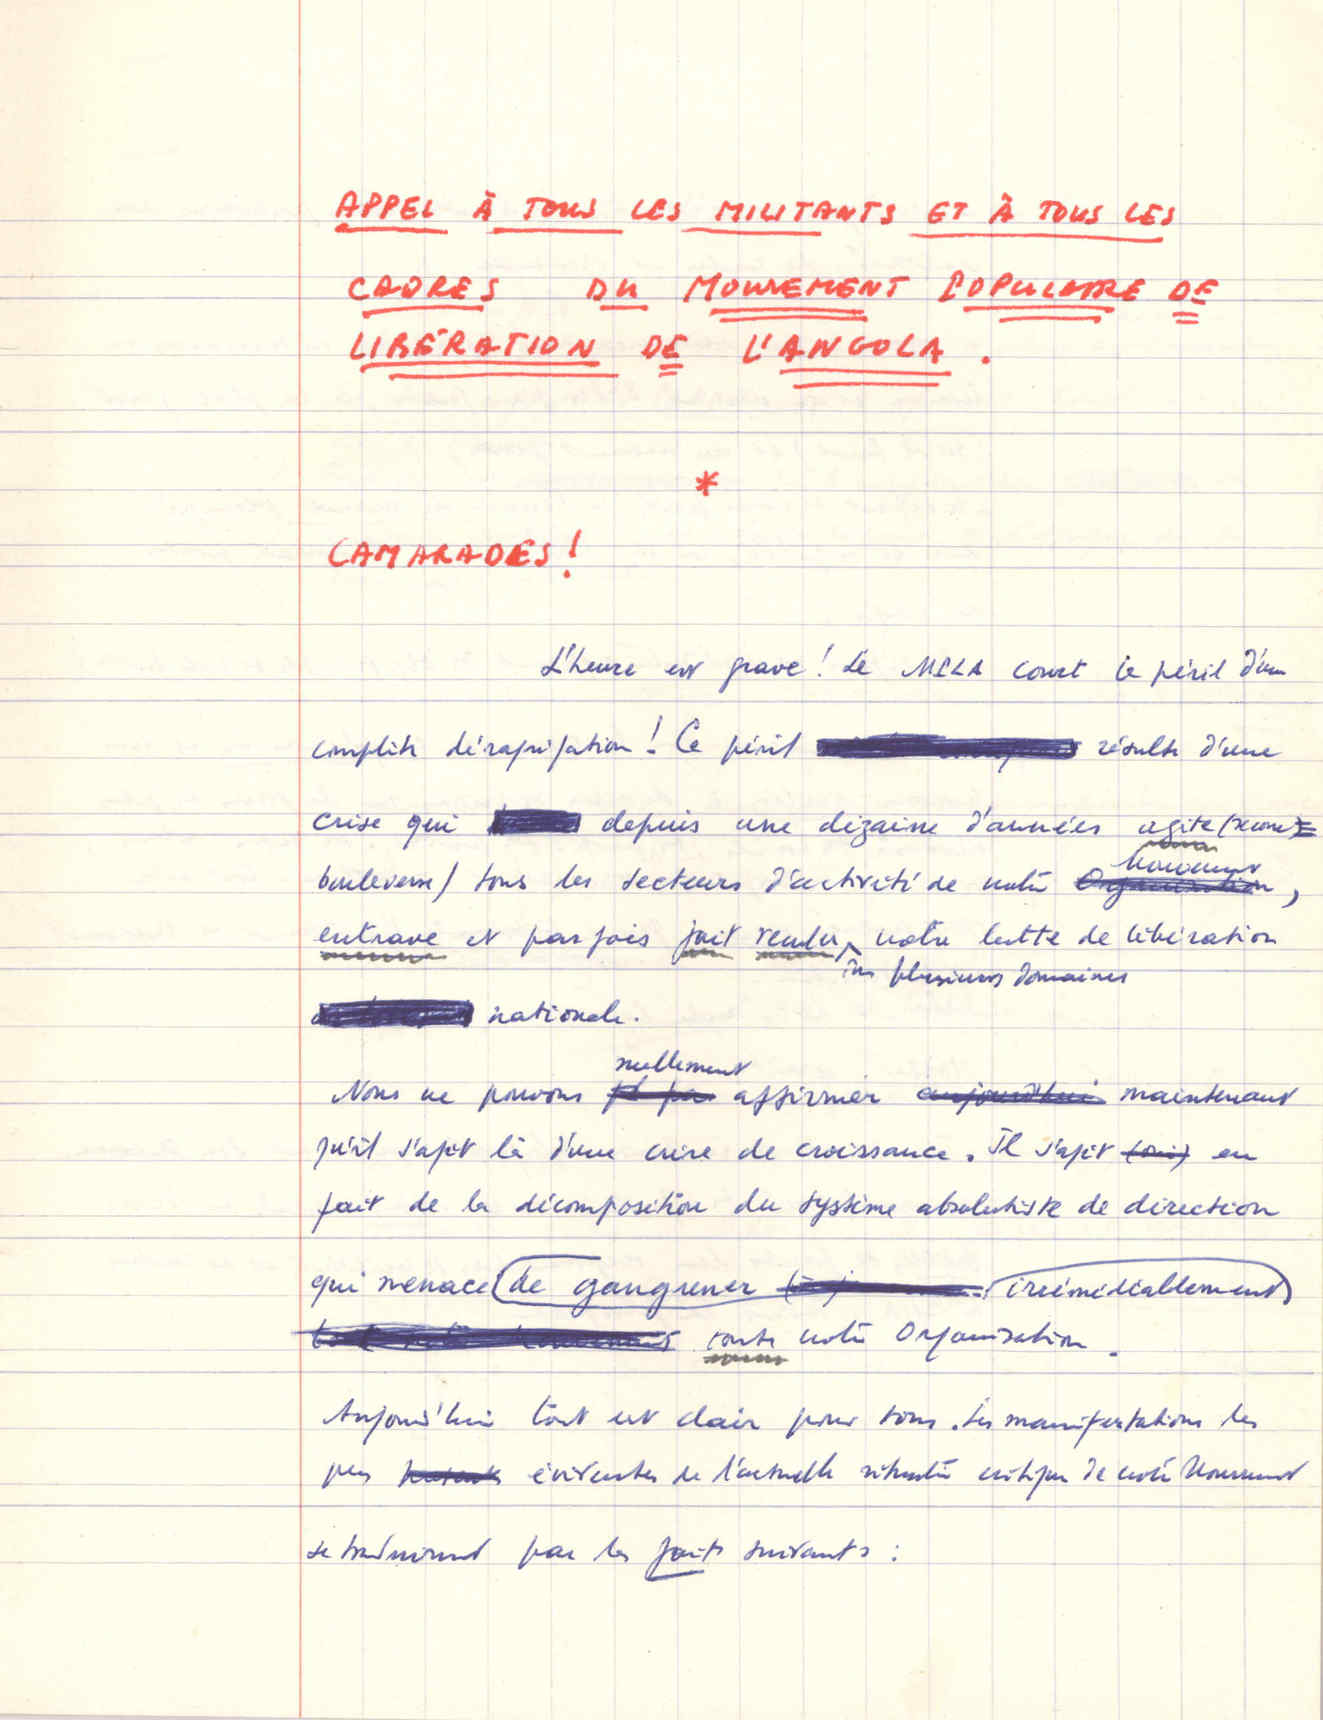 APPEL À TOUS LES MILITANTS ET À TOUS LES
CADRES DU MOUVEMENT POPULAIRE DE
LIBÉRATION DE L'ANGOLA.
*
CAMARADES!
L'heure est grave! Le MPLA court le péril d'une
complète désagrégation! Ce péril résulte d'une
crise qui depuis une dizaine d'années agite (secoue =
bouleverse) tous les secteurs d'activité de notre Organisation,
Mouvement
entrave et parfois fait reculer notre lutte de libération
en plusieurs domaines
nationale.
nullement
Nous ne pouvons affirmer aujourd'hui maintenant
qu'il s'agit là d'une crise de croissance. Il s'agit (oui) en
fait de la décomposition du système absolutiste de direction
qui menace (de gangrener irrémédiablement)
toute notre Organisation.
Aujourd'hui tout est clair pour tous. Les manifestations les
plus évidentes de l'actuelle situation critique de notre Mouvement
se traduisent par les faits suivants :